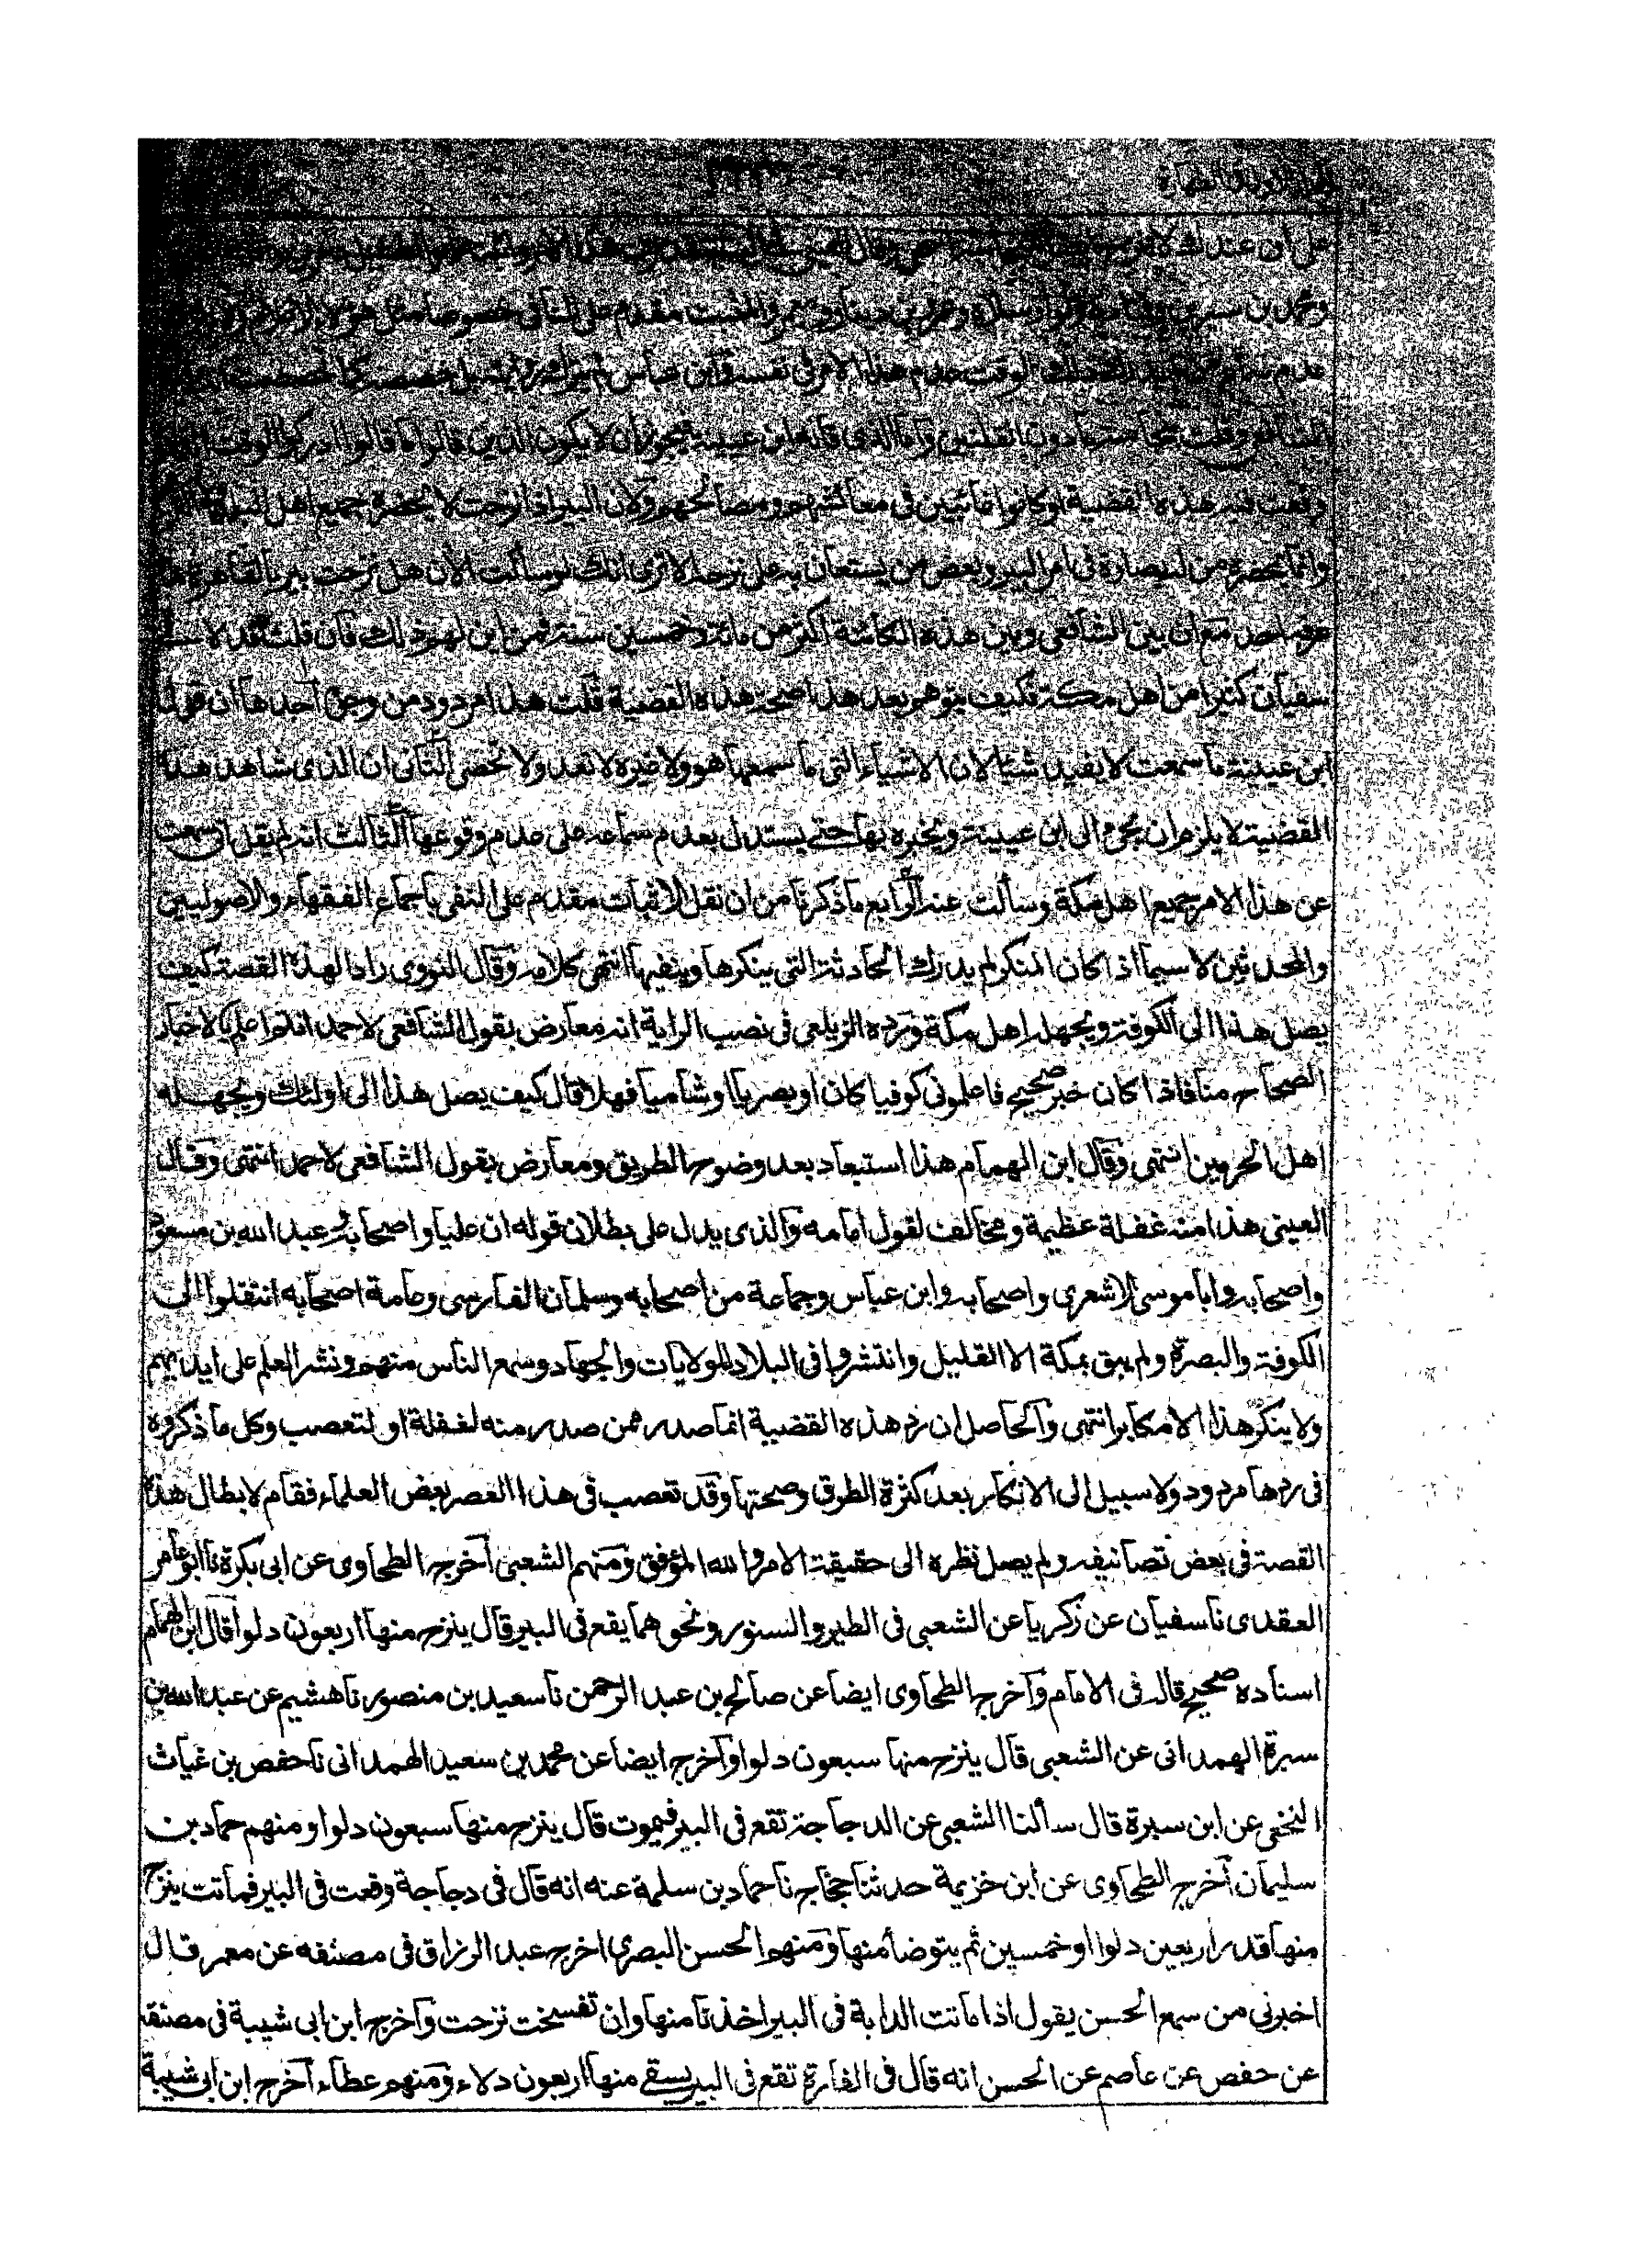 على ان عندك لا
ومحمد بن سيرين وقتادة وعمرو بن دينار والمثبت مقدم على النافي خصوصا مثل هؤلاء
عدم الوقت عدم هذا الامر في نفسه وابن عباس
الشافعي واما الذي قاله ابن عيينة فيجوز ان لا يكون الذين قالوا ما قالوا ادركوا الوقت
وقعت فيه هذه القضية او كانوا غائبين في معائشهم ومصالحهم ولان البير اذا نزحت لا يحضره جميع اهل البلد
وانما يحضره من له بصارة في امر البير وبعض من يستعان به على نزحه الا ترى انك لو سألت الآن هل نزحت بير بالقاهرة
عرفه احد مع ان بين الشافعي وبين هذه الكائنة اكثر من مائة وخمسين سنة فمن اين لهم ذلك فان قلت قد
سفيان كثيرا من اهل مكة فكيف يتوهم بعد هذا صحة هذه القضية قلت هذا مردود من وجوه احدها ان قول
ابن عيينة ما سمعت لا يفيد شيئا لان الاشياء التي ما سمعها هو ولا غيره لا تعد ولا تحصى الثاني ان الذي شاهد هذه
القضية لا يلزم ان يجئ الى ابن عيينة ويخبره بها حتى يستدل بعدم سماعه على عدم وقوعها الثالث انه لم يقل اني سمعت
عن هذا الامر جميع اهل مكة وسألت عنه الرابع ما ذكرنا من ان نقل الاثبات مقدم على النفي باجماع الفقهاء والاصوليين
والمحدثين لا سيما اذا كان المنكر لم يدرك الحادثة التي ينكرها وينفيها انتهى كلامه وقال النووي رادا لهذه القصة كيف
يصل هذا الى الكوفة ويجهله اهل مكة ورده الزيلعي في نصب الراية انه معارض بقول الشافعي لاحمد انتم اعلم بالاخبار
الصحاح منا فاذا كان خبر صحيح فاعلموني كوفيا كان او بصريا او شاميا فهلا قال كيف يصل هذا الى اولئك ويجهله
اهل الحرمين انتهى وقال ابن الهمام هذا استبعاد بعد وضوح الطريق ومعارض بقول الشافعي لاحمد انتهى وقال
العيني هذا منه غفلة عظيمة ومخالف لقول امامه والذي يدل على بطلان قوله ان عليا واصحابه وعبد الله بن مسعود
واصحابه وابا موسى الاشعري واصحابه وابن عباس وجماعة من اصحابه وسلمان الفارسي وعامة اصحابه انتقلوا الى
الكوفة والبصرة ولم يبق بمكة الا القليل وانتشروا في البلاد للولايات والجهاد وسمع الناس منهم ونشر العلم على ايديهم
ولا ينكر هذا الا مكابر انتهى والحاصل ان رد هذه القضية انما صدر ممن صدر منه لغفلة او لتعصب وكل ما ذكروه
في ردها مردود ولا سبيل الى الانكار بعد كثرة الطرق وصحتها وقد تعصب في هذا العصر بعض العلماء فقام لابطال هذه
القصة في بعض تصانيفه ولم يصل نظره الى حقيقة الامر والله الموفق ومنهم الشعبي اخرج الطحاوي عن ابي بكرة نا ابو عامر
العقدي نا سفيان عن زكريا عن الشعبي في الطير والسنور ونحوهما يقع في البير قال ينزح منها اربعون دلوا قال ابن الهمام
اسناده صحيح قاله في الامام واخرج الطحاوي ايضا عن صالح بن عبد الرحمن نا سعيد بن منصور نا هشيم عن عبد الله بن
سبرة الهمداني عن الشعبي قال ينزح منها سبعون دلوا واخرج ايضا عن محمد بن سعيد الهمداني نا حفص بن غياث
النخعي عن ابن سبرة قال سألنا الشعبي عن الدجاجة تقع في البير فيموت قال ينزح منها سبعون دلوا ومنهم حماد بن
سليمان اخرج الطحاوي عن ابن خزيمة حدثنا حجاج نا حماد بن سلمة عنه انه قال في دجاجة وقعت في البير فماتت ينزح
منها قدر اربعين دلوا او خمسين ثم يتوضأ منها ومنهم الحسن البصري اخرج عبد الرزاق في مصنفه عن معمر قال
اخبرني من سمع الحسن يقول اذا ماتت الدابة في البير اخذنا منها وان تفسخت نزحت واخرج ابن ابي شيبة في مصنفه
عن حفص عن عاصم عن الحسن انه قال في الفارة تقع في البير يسقى منها اربعون دلاء ومنهم عطاء اخرج ابن ابي شيبة